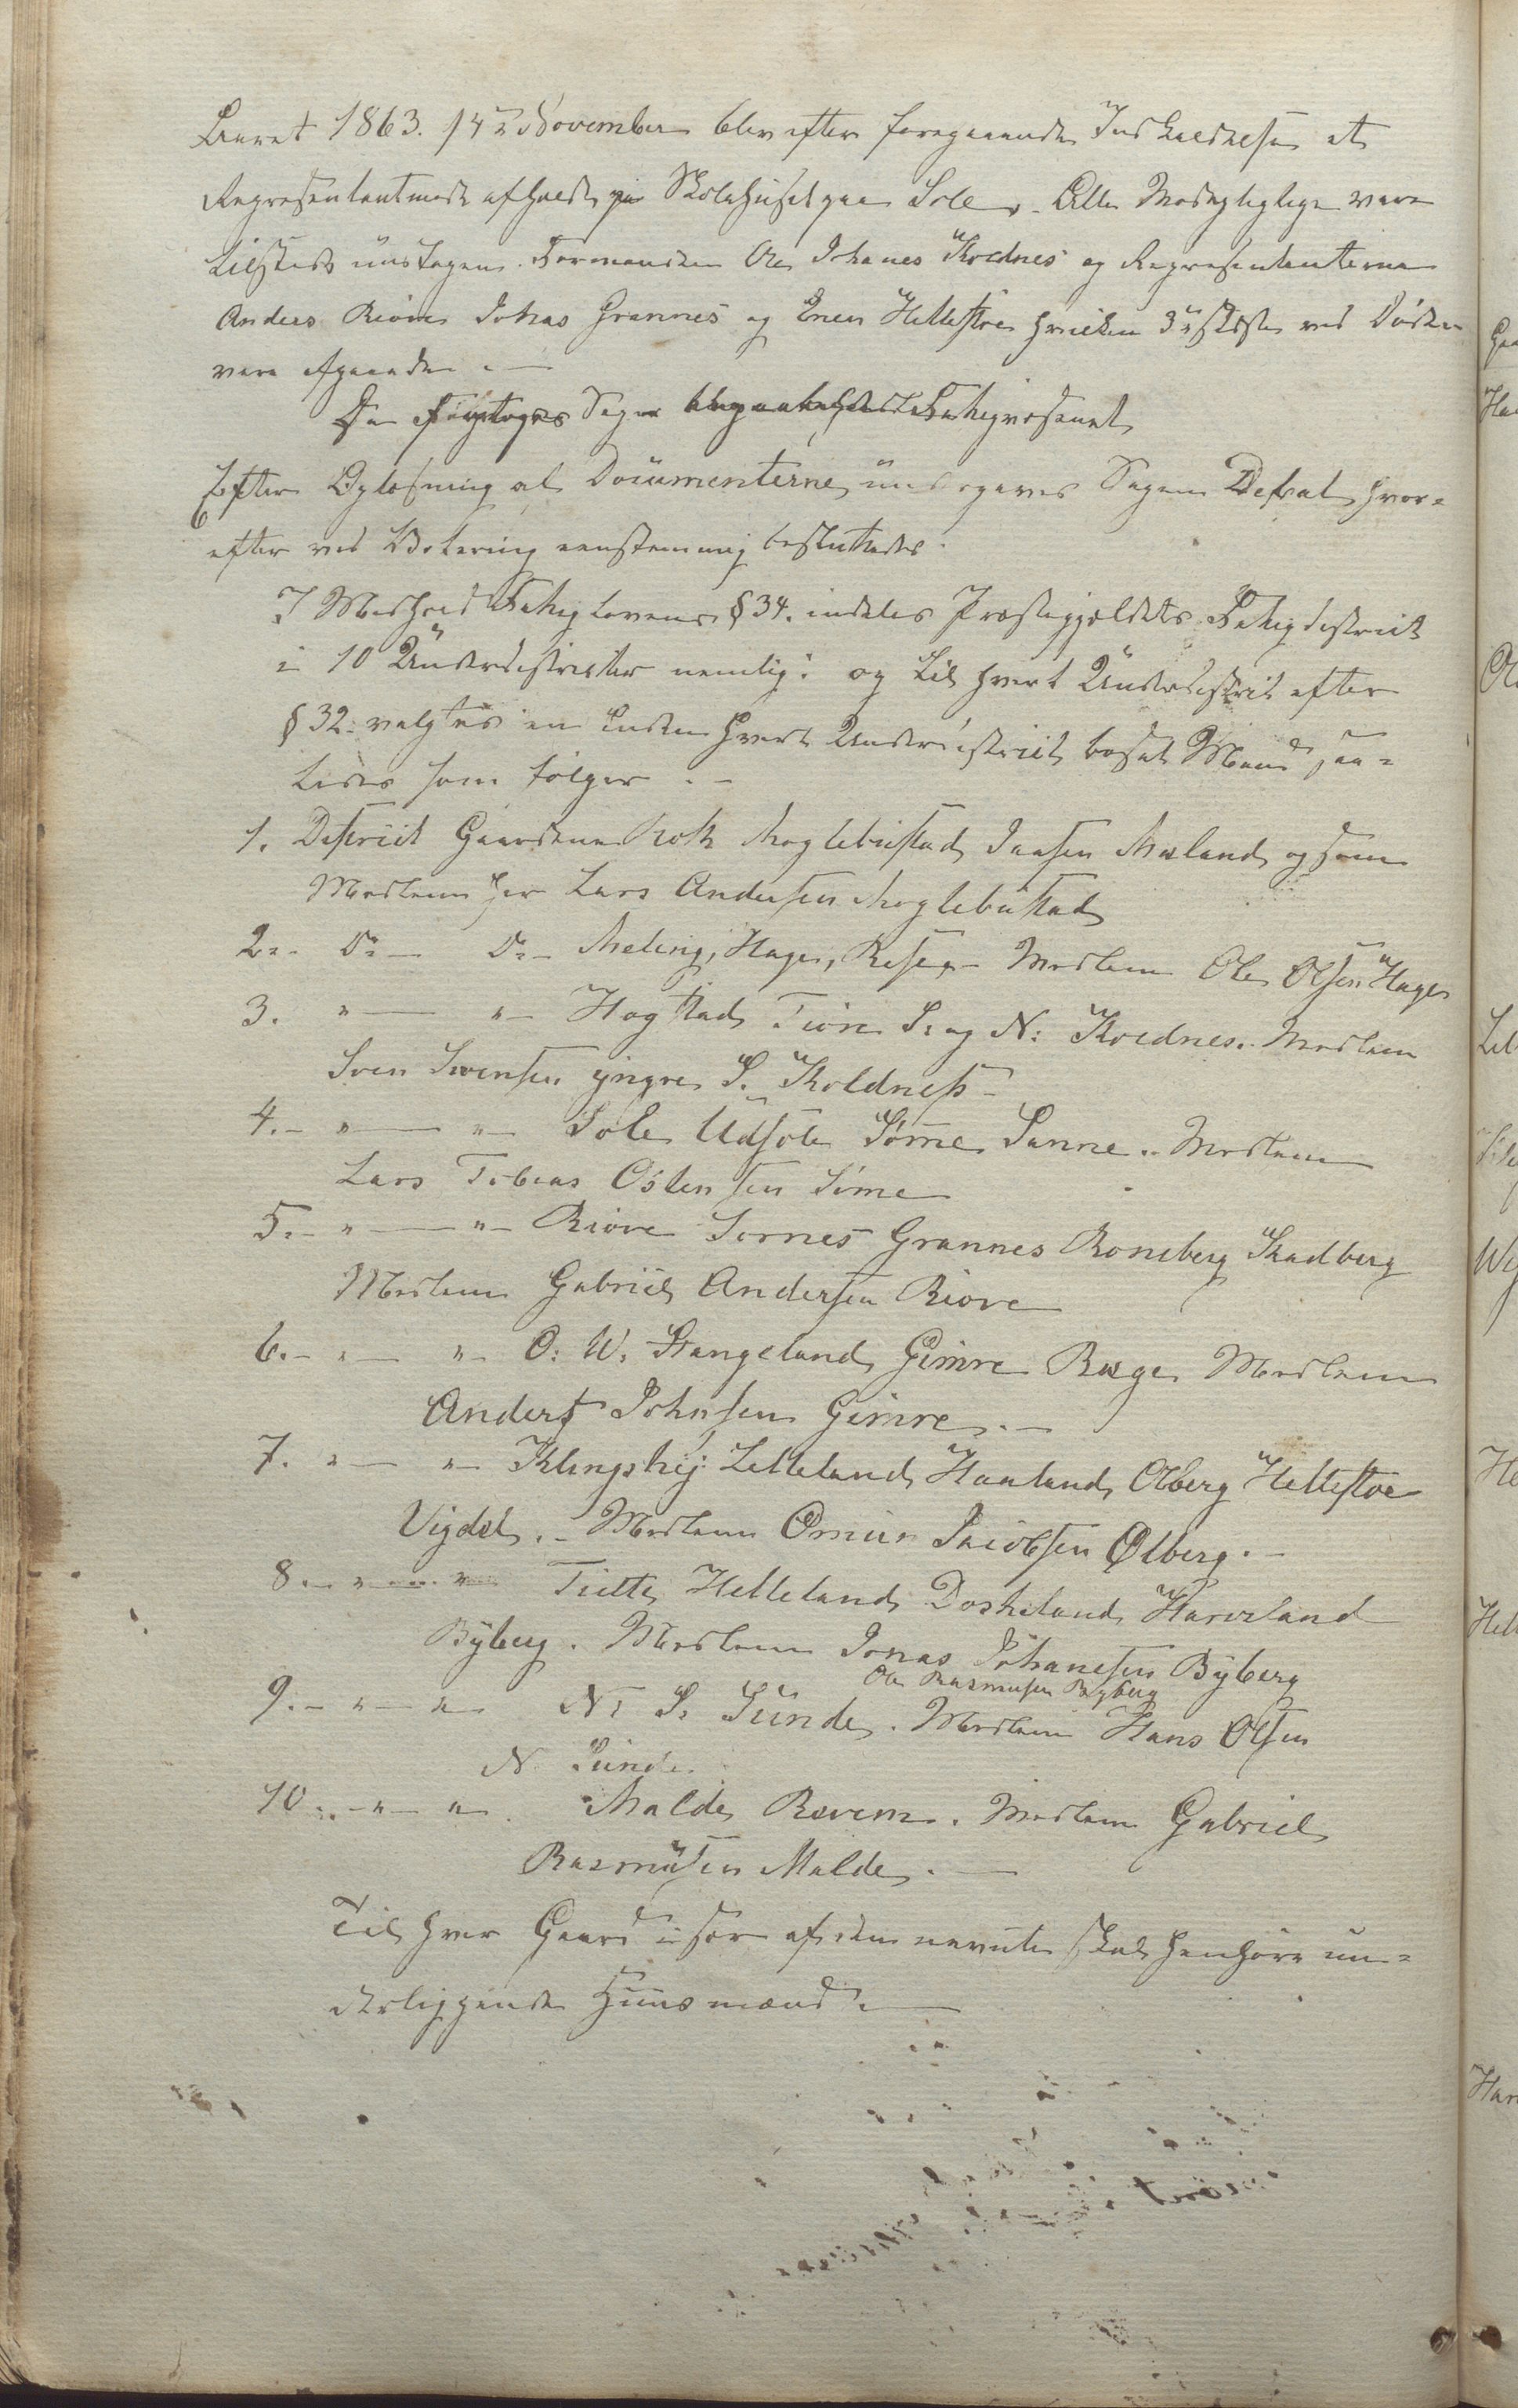 Aaret 1863. 14de November blev efter foregaaende Indkaldelse et
Representantmøde afholdt paa Skolehuset paa Sole. - Alle Modepligtige vare
tilstede undtagen Formanden Ole Johanes Koldnes og Representanterne
Anders Riøve Johas Grannes og Enev Hellestøe hvilken 3de sidste ved Døden
vare afgaaede. —
Da foretoges Sagen angaaende Fattigvæsenet
Efter Oplæsning af Documenterne undergaves Sagen Debat, hvor=
efter ved Votering eenstemmig besluttedes.
I Medhold Fattiglovens § 34. indeles Præstegjeldets Fattigdistrikt
i 10 Underdistrikter nemlig: og til hvert Underdistrikt efter
§ 32. valgtes en inden hvert Underdistrikt bosat Mand saa=
ledes som følger. -
1. Distrikt Gaardene Kolk Meglebustad Jaasen Mæland og som
Medlem her Lars Andersen Meglebustad
2. - Do — Do - Meling, Hage, Ræge - Medlem Ole Olsen Hage
3. " — " — Hogstad Tiøre S. og N: Kolnes. Medlem
Sven Svensen yngre S. Kolness -
4. - " — " — Sole Udsole Sømme Sanne. Medlem
Lars Tobias Ostensen Sømme
5. - " — " — Riøve Sørnes Grannes Roneberg Skadberg
Medlem Gabriel Andersen Riøve
6. - " — " — O: W. Stangeland Gimre Ræge Medlem
Anders Johnsen Gimre. —
7. " — " — Klingshej Lelleland Haaland Olberg Hellestøe
Vigdel. - Medlem Omund Jacobsen Ølberg. -
8. - " — " — Tjelte Helleland Dosheland Harvaland
Byberg. Medlem Jonas Johanesen Byberg
Ole Rasmusen Byberg
9. - " — " — N: S. Sunde. Medlem Hans Olsen
N. Sunde.
10. - " — " — Malde Ravem. Medlem Gabriel
Rasmusen Malde. —
Til hver Gaard især af den nævnte skal henhøre un=
derliggende Huusmænd. —